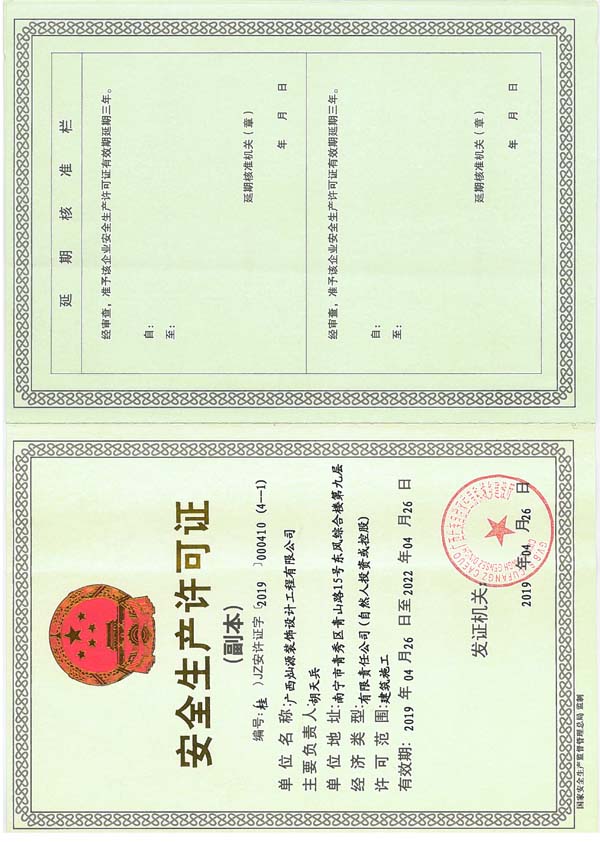 安全生产许可证
(副本)
编号:(桂)JZ安许证字〔2019〕000410(4—1)
单位名称:广西灿源装饰设计工程有限公司
主要负责人:胡天兵
单位地址:南宁市青秀区青山路15号东风综合楼第九层
经济类型:有限责任公司(自然人投资或控股)
许可范围:建筑施工
有效期:2019年04月26日至2022年04月26日
发证机关:
2019年04月26日
国家安全生产监督管理总局 监制
延期核准栏
经审查,准予该企业安全生产许可证有效期延期三年。
自:
至:
延期核准机关(章)
年 月 日
经审查,准予该企业安全生产许可证有效期延期三年。
自:
至:
延期核准机关(章)
年 月 日